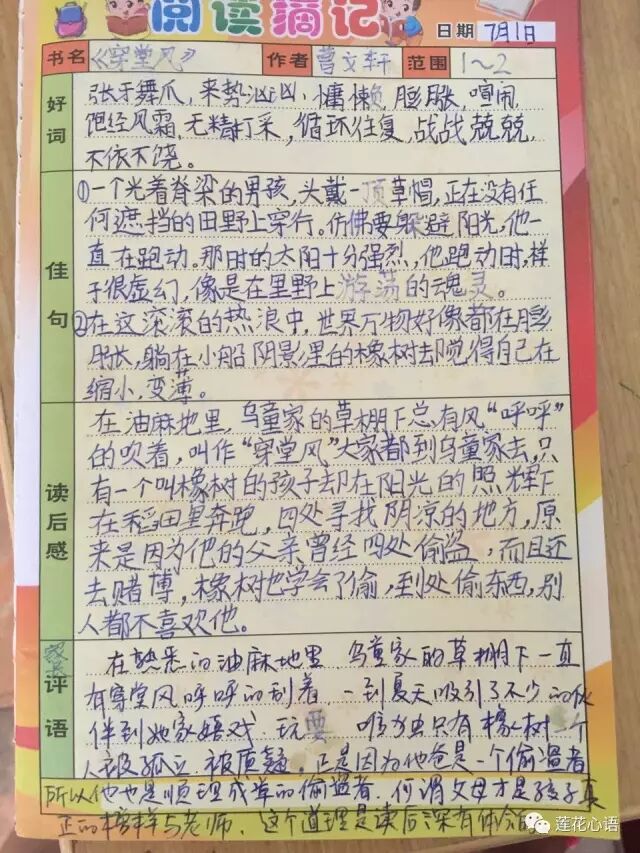 阅读摘记
日期 7月1日
书名 《穿堂风》 作者 曹文轩 范围 1~2
好词
张牙舞爪，来势汹汹，慵懒，膨胀，喧闹，
饱经风霜，无精打采，循环往复，战战兢兢，
不依不饶。
佳句
①一个光着脊梁的男孩，头戴一顶草帽，正在没有任
何遮挡的田野上穿行。仿佛要躲避阳光，他一
直在跑动。那时的太阳十分强烈，他跑动时，样
子很虚幻，像是在里野上游荡的魂灵。
②在这滚滚的热浪中，世界万物好像都在膨
胀，躺在小船阴影里的橡树却觉得自己在
缩小，变薄。
读后感
在油麻地里，乌童家的草棚下总有风“呼呼”
的吹着，叫作“穿堂风”大家都到乌童家去，只
有一个叫橡树的孩子却在阳光的照辉下
在稻田里奔跑，四处寻找阴凉的地方，原
来是因为他的父亲曾经四处偷盗，而且还
去赌博，橡树也学会了偷，到处偷东西，别
人都不喜欢他。
家长
评语
在熟悉的油麻地里 乌童家的草棚下一直
有穿堂风呼呼的刮着，一到夏天吸引了不少的伙
伴到她家嬉戏．玩耍 唯独只有橡树一个
人被孤立．被质疑，正是因为他爸是一个偷盗者
所以他也是顺理成章的偷盗者．何谓父母才是孩子真
正的榜样与老师．这个道理是读后深有体会
莲花心语